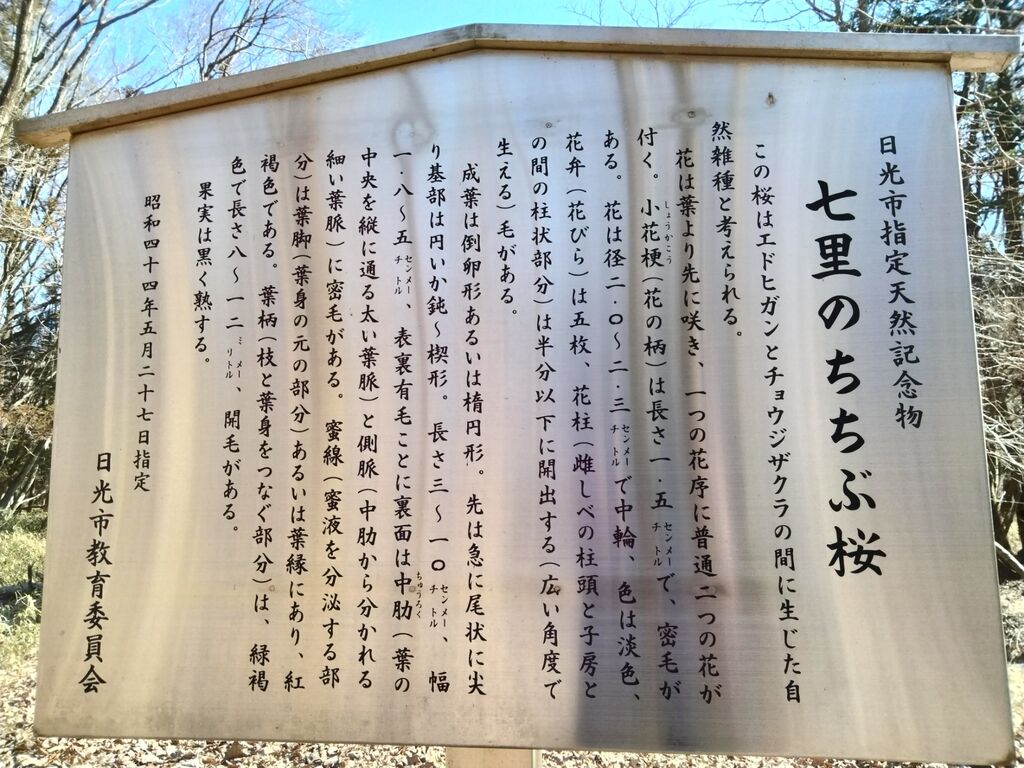 日光市指定天然記念物
七里のちちぶ桜
この桜はエドヒガンとチョウジザクラの間に生じた自
然雑種と考えられる。
花は葉より先に咲き、一つの花序に普通二つの花が
付く。小花梗(花の柄)は長さ一・五センチメートルで、密毛が
ある。花は径二・〇〜二・三センチメートルで中輪、色は淡色、
花弁(花びら)は五枚、花柱(雌しべの柱頭と子房と
の間の柱状部分)は半分以下に開出する(広い角度で
生える)毛がある。
成葉は倒卵形あるいは楕円形。先は急に尾状に尖
り基部は円いか鈍〜楔形。長さ三〜一〇センチメートル、幅
一・八〜五センチメートル、表裏有毛ことに裏面は中肋(葉の
中央を縦に通る太い葉脈)と側脈(中肋から分かれる
細い葉脈)に密毛がある。蜜線(蜜液を分泌する部
分)は葉脚(葉身の元の部分)あるいは葉縁にあり、紅
褐色である。葉柄(枝と葉身をつなぐ部分)は、緑褐
色で長さ八〜一二ミリメートル、開毛がある。
果実は黒く熟する。
昭和四十四年五月二十七日指定
日光市教育委員会